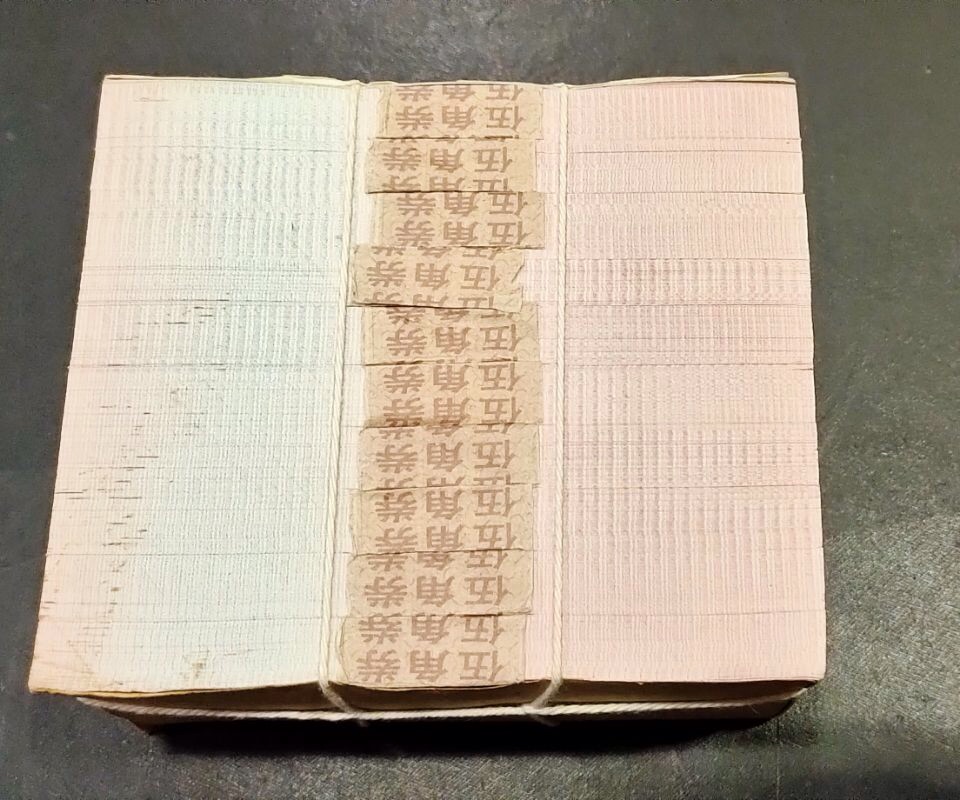 伍角券
伍角券
伍角券
伍角券
伍角券
伍角券
伍角券
伍角券
伍角券
伍角券
伍角券
伍角券
伍角券
伍角券
伍角券
伍角券
伍角券
伍角券
伍角券
伍角券